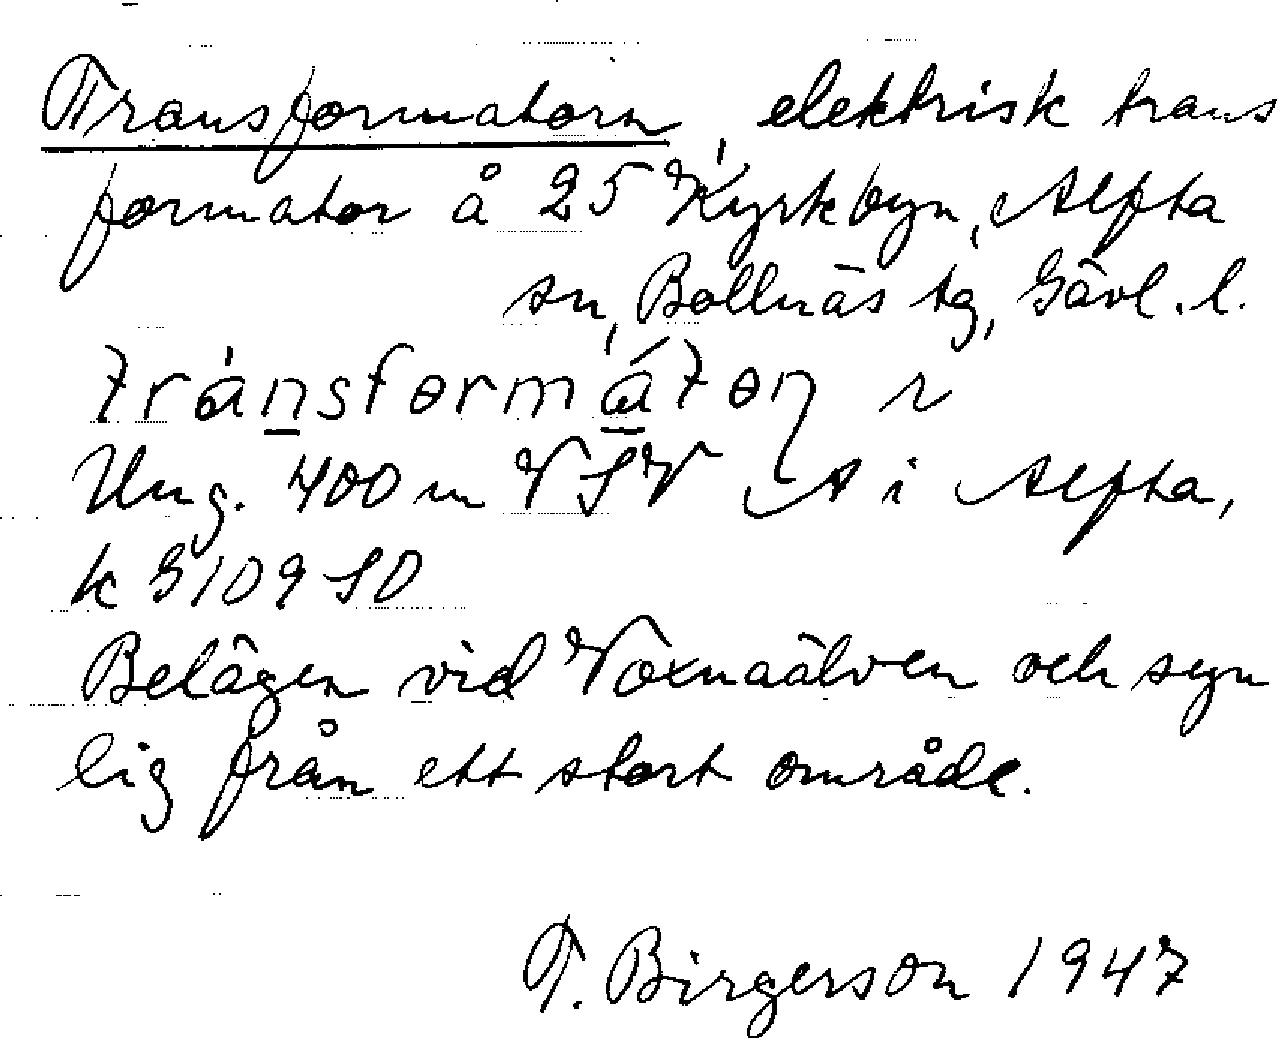 Transformatorn, elektrisk trans
formator å 25 Kyrkbyn, Alfta
sn, Bollnäs tg, Gävl. l.
tránsformátoꞃ r
Ung. 400 m VSV A i Alfta,
k G 109 SO
Belägen vid Voxnaälven och syn
lig från ett stort område.
T. Birgerson 1947